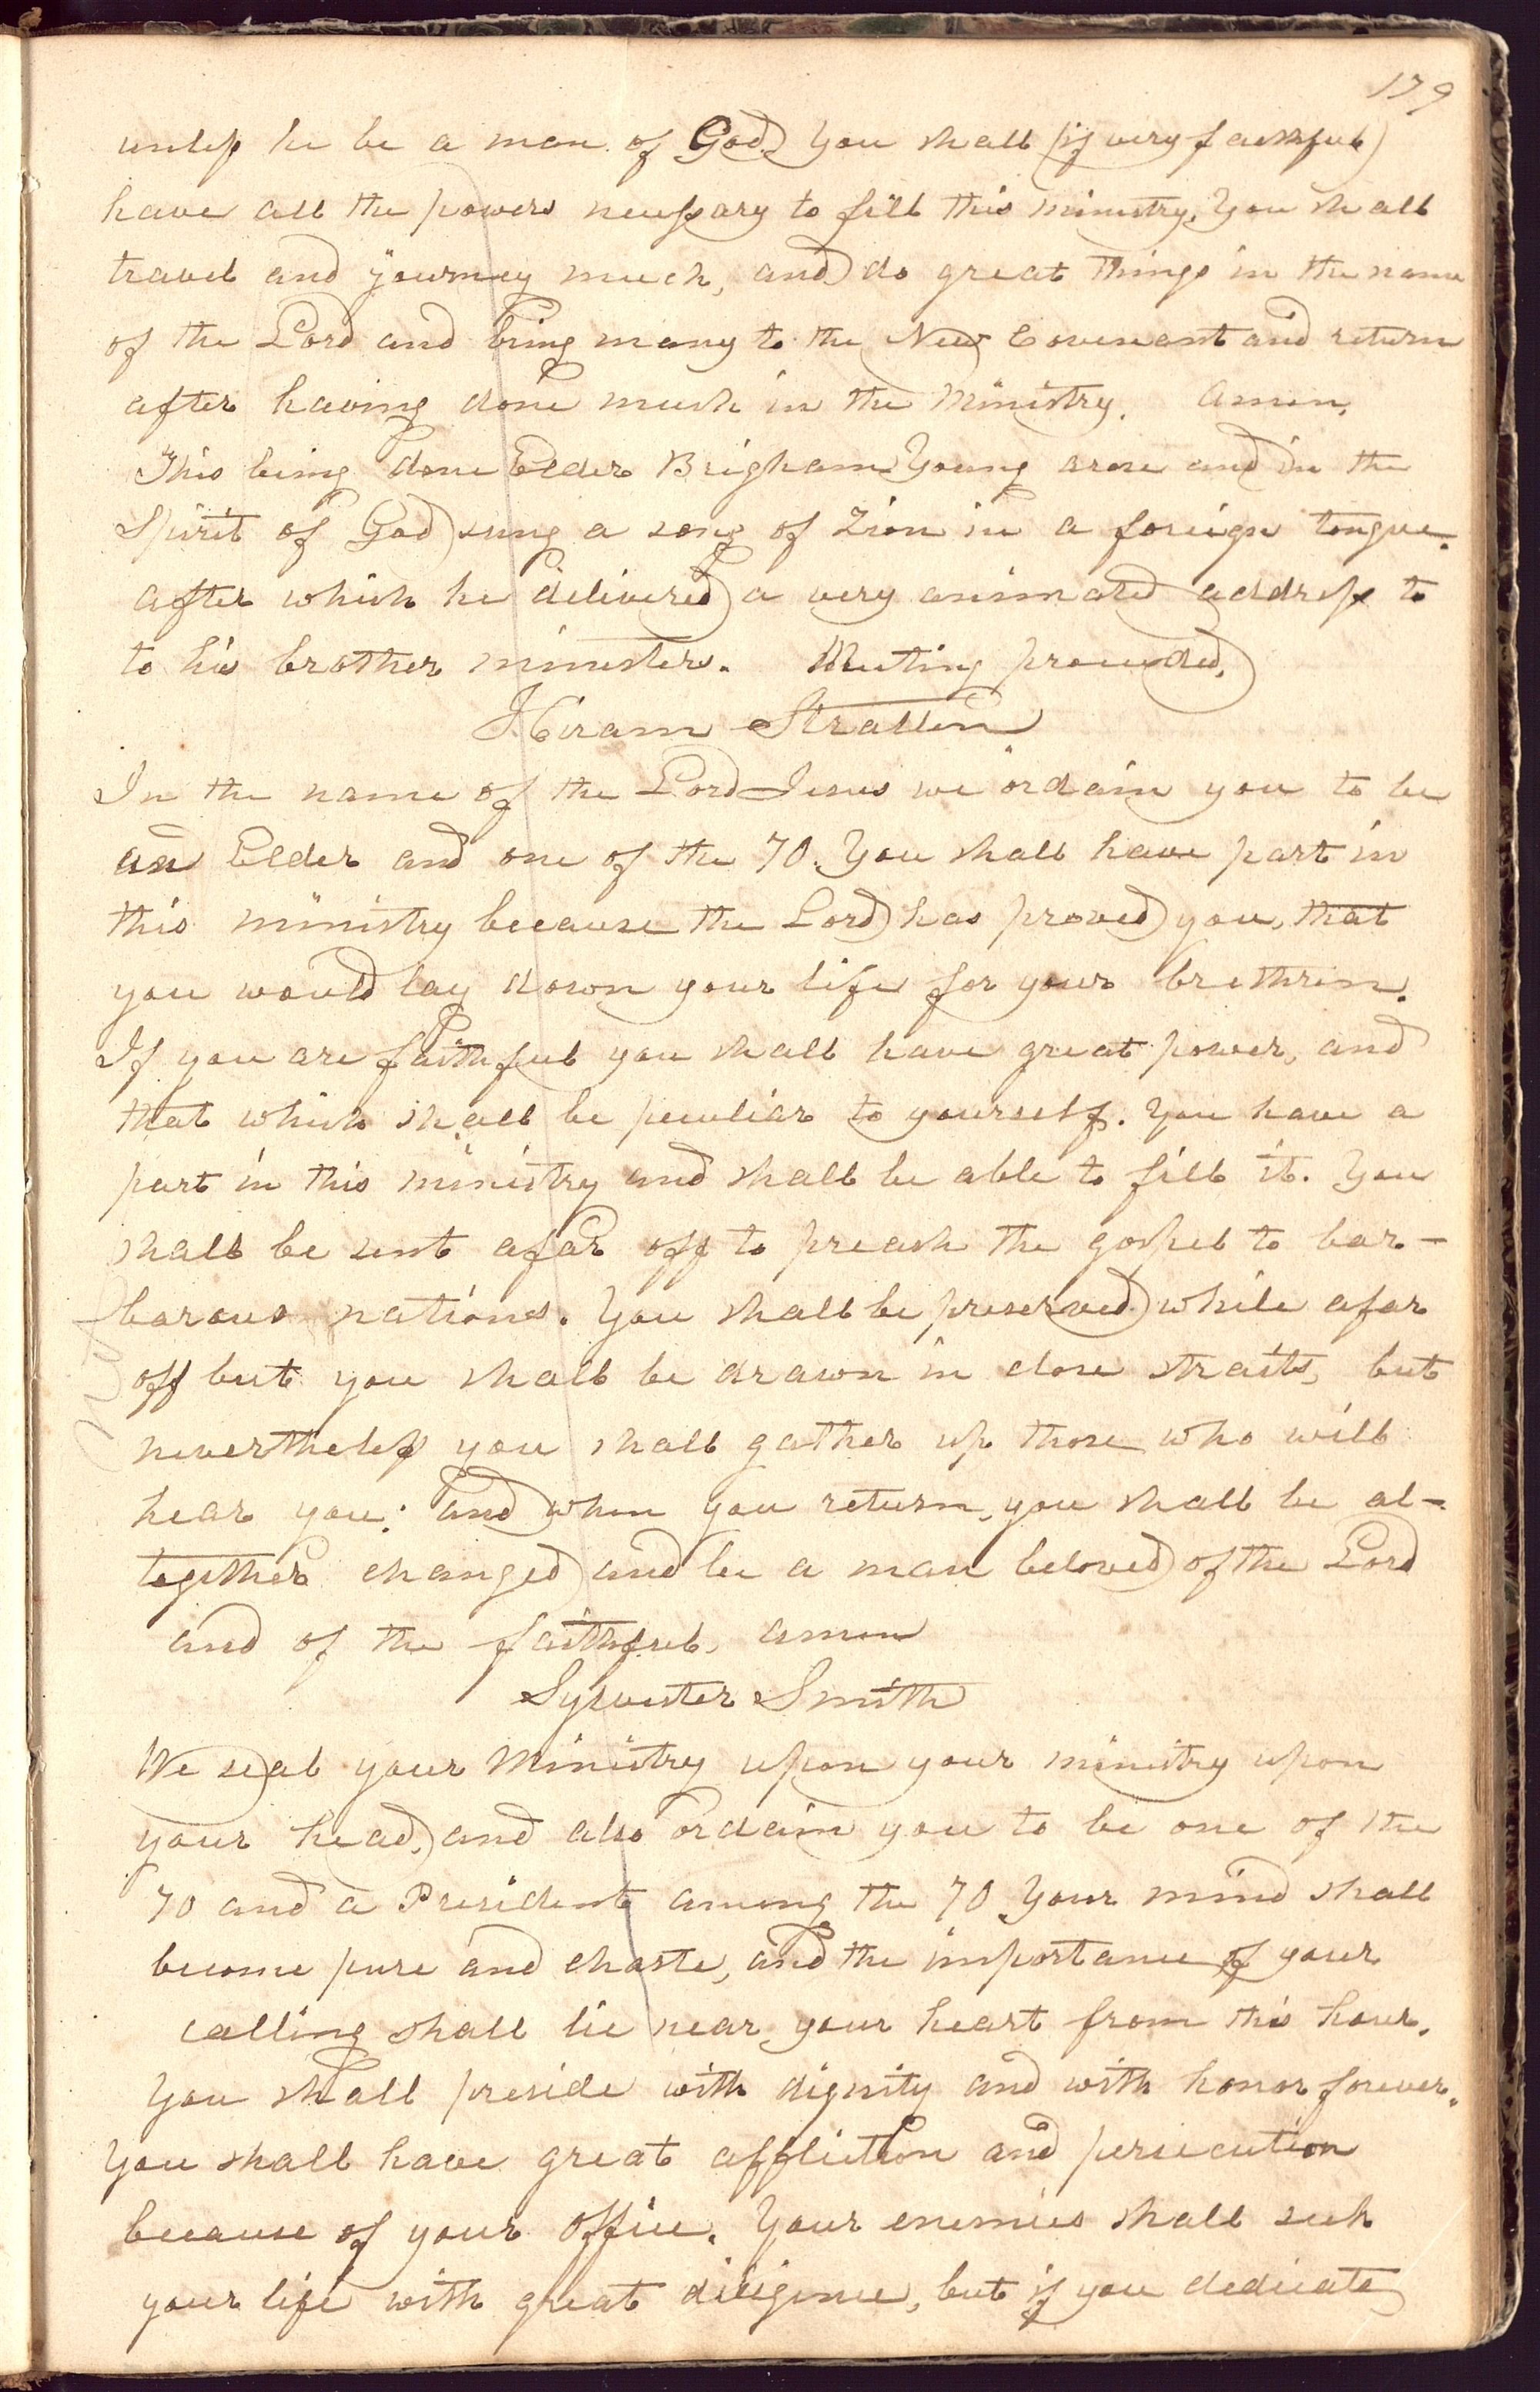 179
unless he be a man of God. You shall (if very faithful)
have all the powers necessary to fill this ministry. You shall
travel and journey much, and do great things in the name
of the Lord and bring many to the New Covenant and return
after having done much in the Ministry. Amen.
This being done Elder Brigham Young arose and in the
Spirit of God sung a song of Zion in a foreign tongue.
after which he delivered a very animated address to
to his brother ministers. Meeting proceeded.
Hiram Stratten
In the name of the Lord Jesus we ordain you to be
an Elder and one of the 70. You shall have part in
this ministry because the Lord has proved you, that
you would lay down your life for your brethren.
If you are faithful you shall have great power, and
that which shall be peculiar to yourself. You have a
part in this ministry and shall be able to fill it. You
shall be sent afar off to preach the gospel to bar-
barous nations. You shall be preserved while afar
off but you shall be drawn in close straits, but
nevertheless you shall gather up those who will
hear you: and when you return, you shall be al-
together changed and be a man beloved of the Lord
and of the faithful, amen
Sylvester Smith
We seal your Ministry upon your ministry upon
your head, and also ordain you to be one of the
70 and a President among the 70. Your mind shall
become pure and chaste, and the importance of your
calling shall lie near your heart from this hour.
You shall preside with dignity and with honor forever.
You shall have great affliction and persecution
because of your office. Your enemies shall seek
your life with great diligence, but if you dedicate